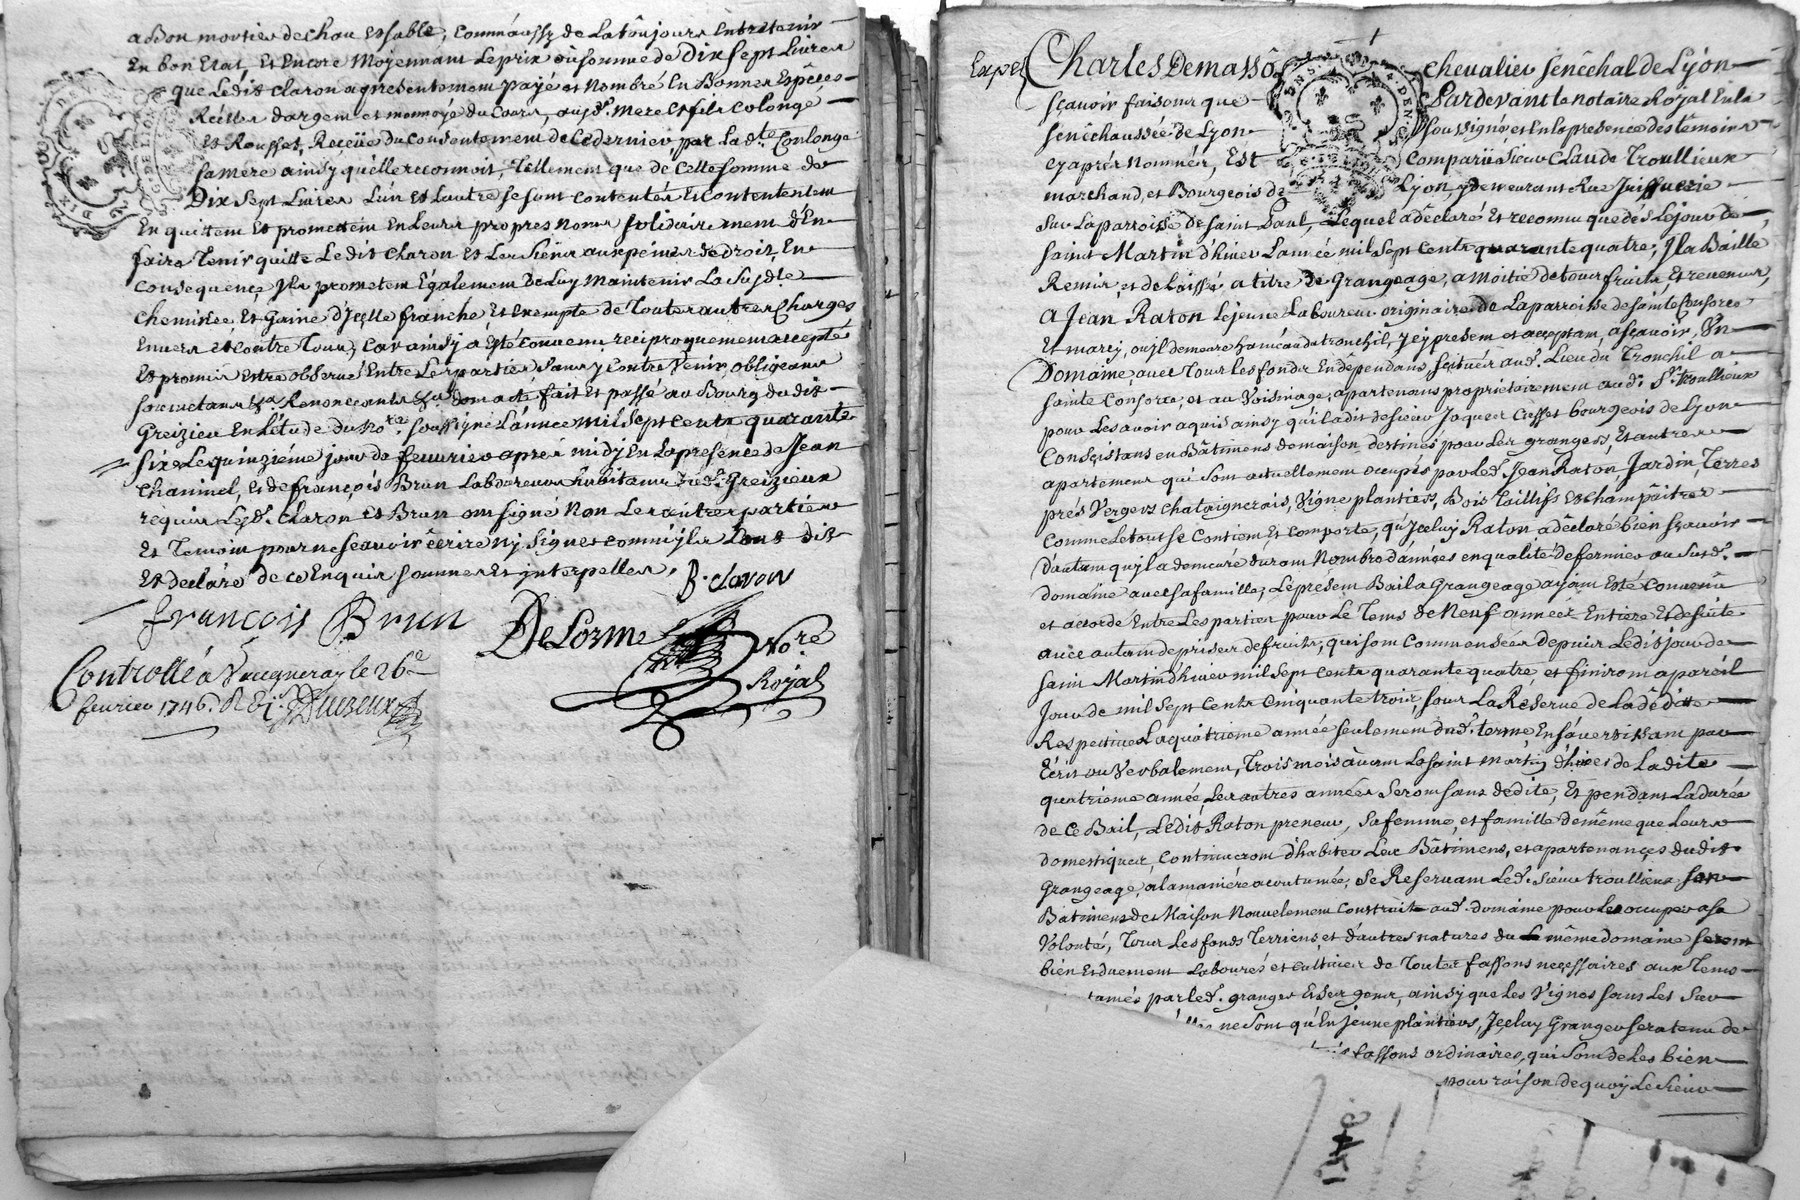 a Bon mortier de chau et sable, comm'aussy de La toujours Entretenir
En bon Etat, Et Encore Moyennant Le prix ou somme de Dix sept Livres
que Ledit Claron a presentement payé et Nombré En Bonnes Espêces
Réelles d'argent et monnoye du Cours, aux mere et fils Colonge
et Rousset, Reçüe du Consentement de Ce dernier, par La dte Coulonge
sa mere ainsy qu'elle reconnoit, Tellement que de Cette somme de
Dix sept Livres L'un et L'autre se sont contentés Et contentent
En quittent Et promettent En Leurs propres Noms solidairement d'En
faire Tenir quitte Le dit Claron Et Les siens aux peines de droit, En
Consequence Ils promettent Également De Luy Maintenir La Susde
cheminée, Et Gaine d'Icelle franche, Et Exempte de Toutes autres Charges
Envers et contre Tous, Car ainsy a Esté Convenu reciproquement accepté
Et promis Estre observé Entre Les parties sans y contre Venir, obligeans
soumetans &a Renonceants &a dont acte fait Et passé au Bourg du dit
Greizieu En L'étude du Nore. soussigné L'année mil sept cents quarante
six Le quinziéme jour de feuvrier aprés midy En La presence de Jean
Chaninel, Et de françois Brun Laboureurs habitants du d. Greizieux
requis Les d. Claron Et Brun ont signé Non Les autres parties
Et Temoin pour ne sçavoir écrire Ny signer comm'ils L'ont dit
Et declaré de ce Enquis sommés Et interpellés.
B. claron
françois Brun
DeLorme Nore Royal
Controllé a Vaugneray le 26e
fevrier 1746.
Expé
Charles De massô chevalier senêchal de Lÿon
sçavoir faisons que Pardevant Le notaire Royal En la
senêchaussée de Lyon soussigné, et En la presence des têmoins
cy aprés nommés, Est comparu sieur Claude Troullieux
marchand, et Bourgeois de Lyon, y demeurant Rue Juifverie
sur La paroisse de saint Paul, Lequel a déclaré Et reconnu que dés Le jour de
saint Martin d'hiver L'année mil sept cents quarante quatre, Il a Baillé
Remis, et delaissé a titre De Grangeage, a Moitié de tous fruits, Et revenus,
a Jean Raton Le jeune Laboureur originaire de La parroisse de sainte Consorce
Et marcy, ou il demeure hamêau du tronchil, Icy present et acceptant, a sçavoir, Un
Domaine, avec Tous Les fonds En dépendans, scitués aud. Lieu du Tronchil a
sainte Consorce, et au Voisinage, apartenans propriétairement aud. Sr. troullieux
pour Les avoir aquis ainsy qu'il a dit de sieur Jaques Cusset bourgeois de Lyon
Conçistans en Bâtimens de maison destinés pour Les grangers, Et autres
apartemens qui sont actuellement occupés par Led. Jean Raton, Jardin, Terres
prés Vergers chataignerais, Vigne plantiers, Bois Taillifs et champêitres
Comme Le tout se Contient Et comporte, qu'Icelluy Raton a déclaré bien sçavoir
d'autant qu'il a demeuré durant Nombre d'années en qualité de fermier au Susd.
domaine avec sa famille, Le present Bail a Grangeage ayant Esté convenû
et accordé Entre Les parties pour Le Tems de Neuf années Entieres Et de suite
avec autant de prises de fruits, qui sont Commensées Depuis Ledit jour de
saint Martin d'hiver mil sept cents quarante quatre, et finiront a pareil
Jour de mil sept Cents Cinquante trois, sous La Reserve de La dédite
Respective La quatrieme année seulement dud. terme En s'avertissant par
Ecrit ou Verbalement, Trois mois avant La saint martin d'hiver de La dite
quatrieme année, Les autres années seront sans dédite, Et pendant La durée
de Ce Bail, Le dit Raton preneur, sa femme, et famille de même que Leurs
domestiques, Continueront d'habiter Les Bâtimens, et apartenances du dit
Grangeage, a la maniére acoutumée, se Reservant Led. sieur troullieux son
Batimens de Maison Nouvelement Construit aud. domaine pour Les occuper a sa
Volonté, Tous Les fonds Terriens, et d'autres natures du Le même domaine seront
bien Et duement Labourés et cultivés de Toutes fassons necessaires aux Tems
tumés par Led. granger Et ses gens, ainsy que Les Vignes sous Les
ne sont qu'En jeune plantiers, Icelluy Granger sera tenu de
fassons ordinaires, qui sont de Les bien
pour raison de quoy Le sieur